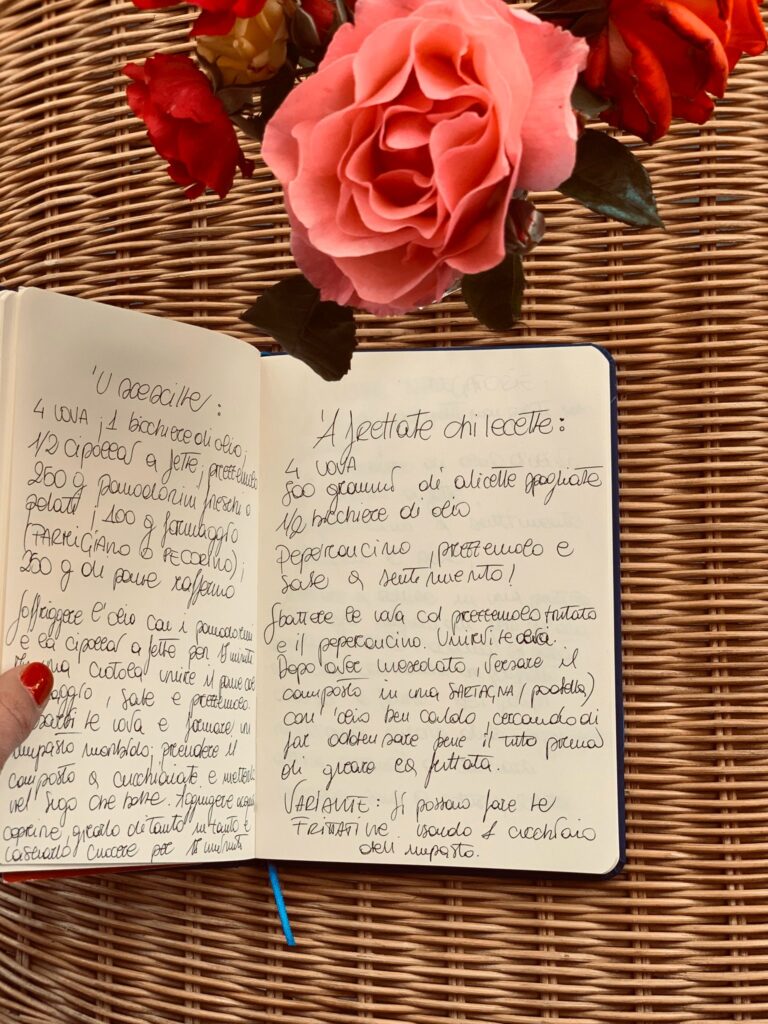 4 UOVA, 1 bicchiere di olio,
1/2 cipolla a fette, prezzemolo
250 g pomodorini freschi o
pelati, 100 g formaggio
(PARMIGIANO O PECORINO),
250 g di pane raffermo
Soffriggere l'olio con i pomodorini
e la cipolla a fette per 15 minuti
una ciotola unire il pane col
, sale e prezzemolo.
le uova e formare un
impasto morbido; prendere il
composto a cucchiaiate e metterlo
nel sugo che bolle. Aggiungere acqua
coprire, girarlo di tanto in tanto e
lasciarlo cuocere per 15 minuti
'A frettate chi lecette:
4 UOVA
500 grammi di alicette spogliate
1/2 bicchiere di olio
peperoncino, prezzemolo e
sale a sentimento!
Sbattere le uova col prezzemolo tritato
e il peperoncino. Unirvi le
Dopo aver mescolato, versare il
composto in una SARTAGNA/(padella)
con l'olio ben caldo, cercando di
far addensare bene il tutto prima
di girare la frittata.
VARIANTE: Si possono fare le
FRITTATINE usando 1 cucchiaio
dell'impasto.